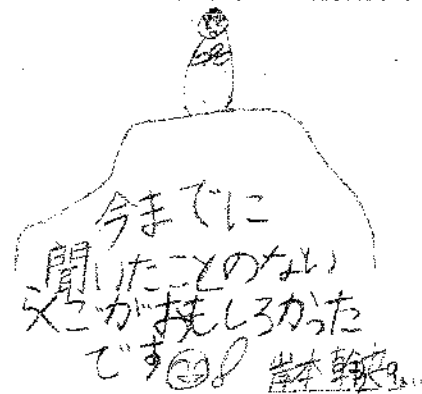 今までに
聞いたことのない
がおもしろかった
です
岸本